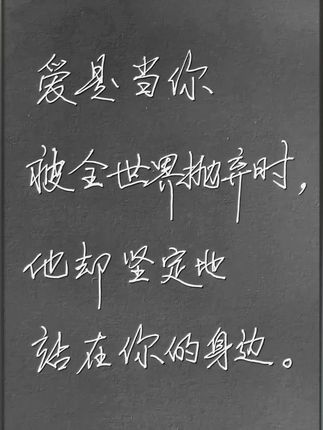 爱是当你
被全世界抛弃时，
他却坚定地
站在你的身边。